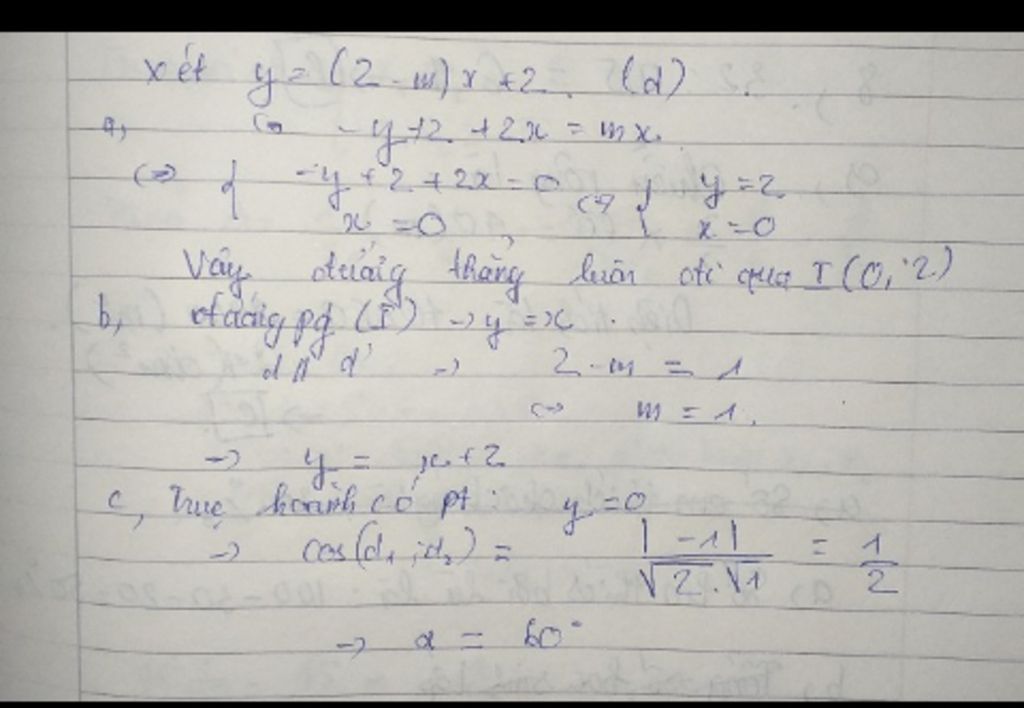 xét y = (2 - m)x + 2. (d)
a, <=> -y + 2 + 2x = mx.
<=> { -y + 2 + 2x = 0 <=> { y = 2
x = 0, x = 0
Vậy đường thẳng luôn đi qua I (0; 2)
b, đường pg (I) -> y = x.
d // d' -> 2 - m = 1
<=> m = 1.
-> y = x + 2
c, Trục hoành có pt: y = 0
-> cos(d₁; d₂) = |-1| / √2.√1 = 1/2
-> α = 60°